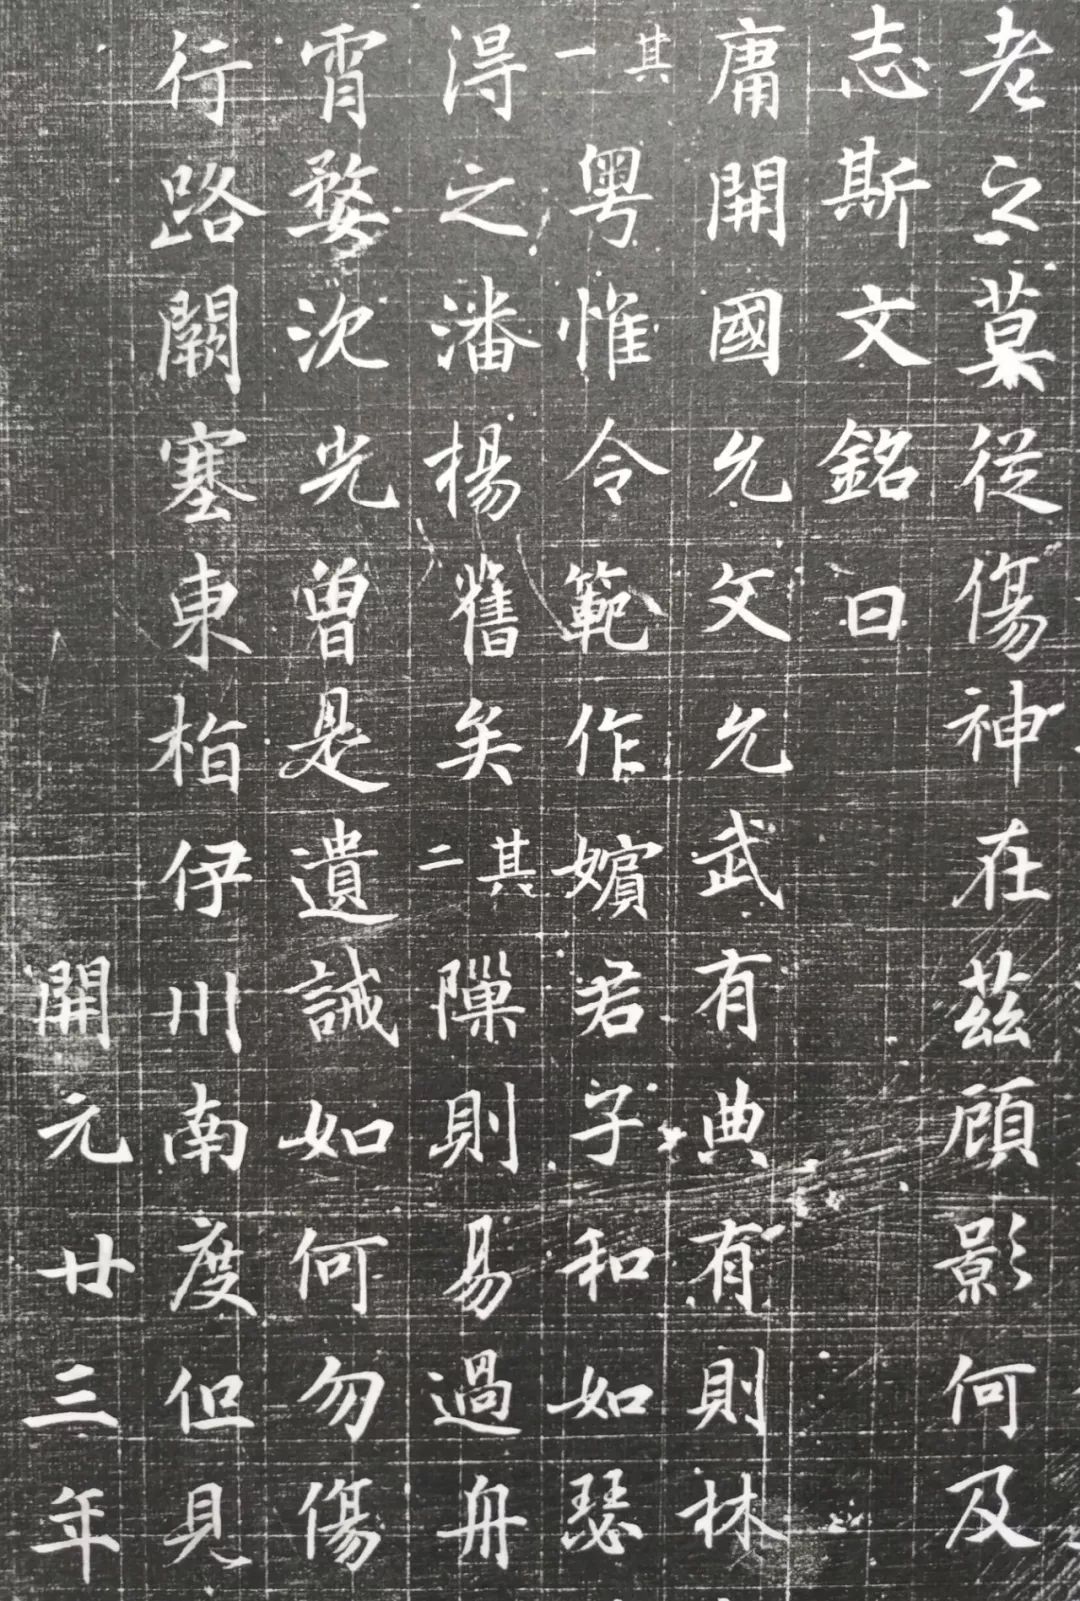 老之莫從傷神在茲顧影何及
志斯文銘曰
庸開國允文允武有典有則林
其一粤惟令範作嬪君子和如瑟
得之潘楊舊矣其二隟則易過舟
霄婺沈光曽是遺誡如何勿傷
行路闕塞東栢伊川南度但見
開元廿三年